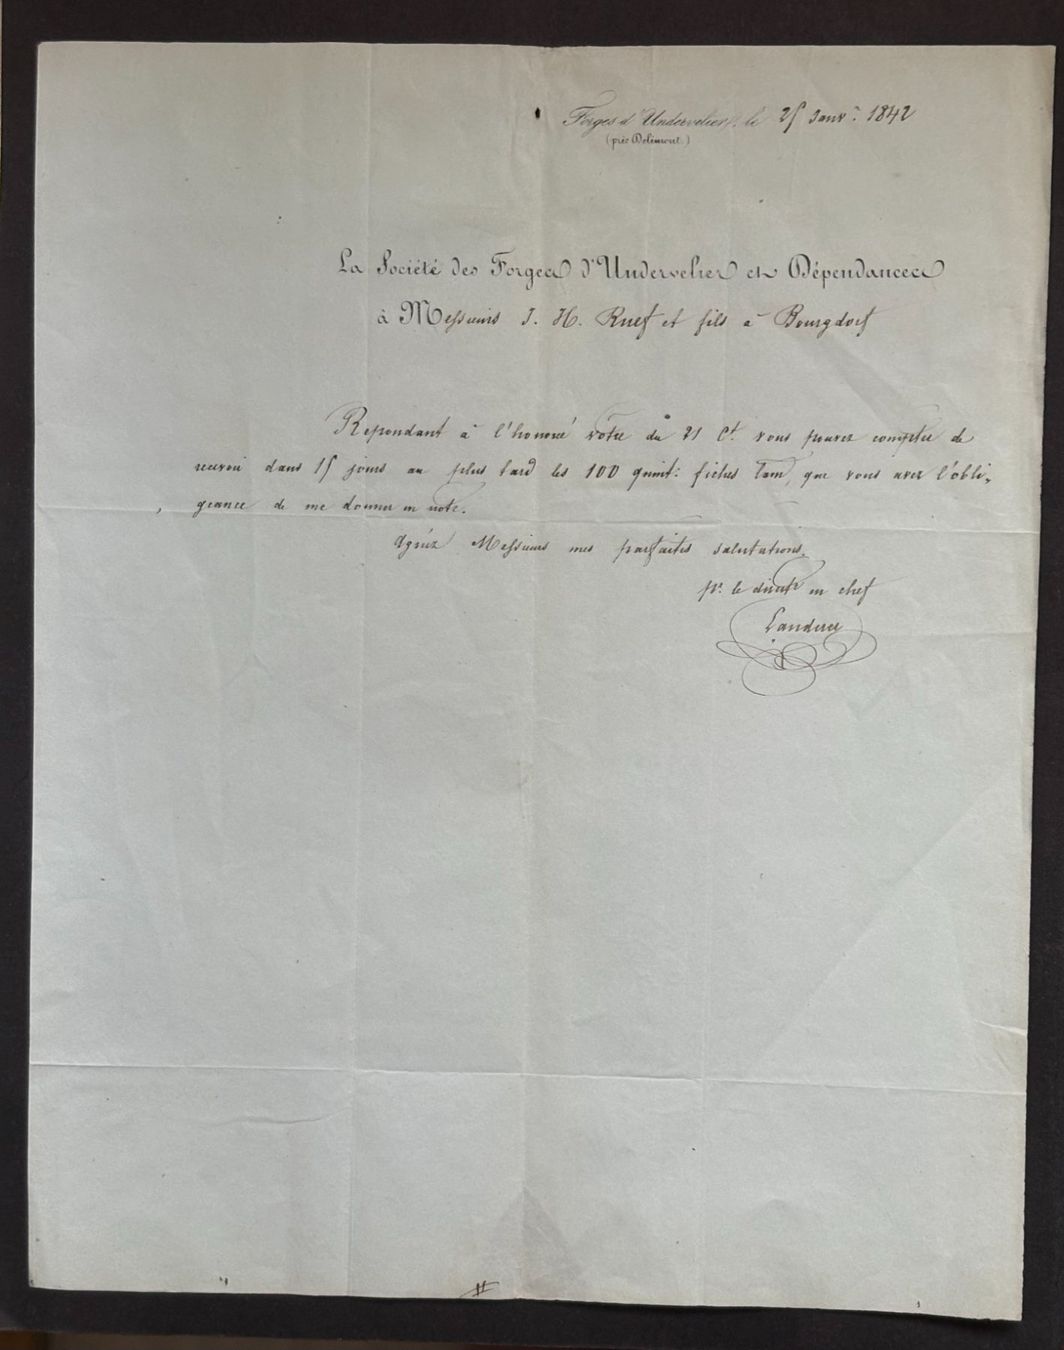 Forges d'Undervelier, le 25 Janvr. 1842
(près Delémont.)
La Société des Forges d'Undervelier et Dépendances
à Messieurs J. H. Ruef et fils à Bourgdorf
Repondant à l'honoré vôtre du 21 Ct. vous pouvez compter de
recevoir dans 15 jours au plus tard les 100 quint: que vous avez l'obli-
geance de me donner en note.
Agréez Messieurs mes parfaites salutations.
pr. le directr en chef